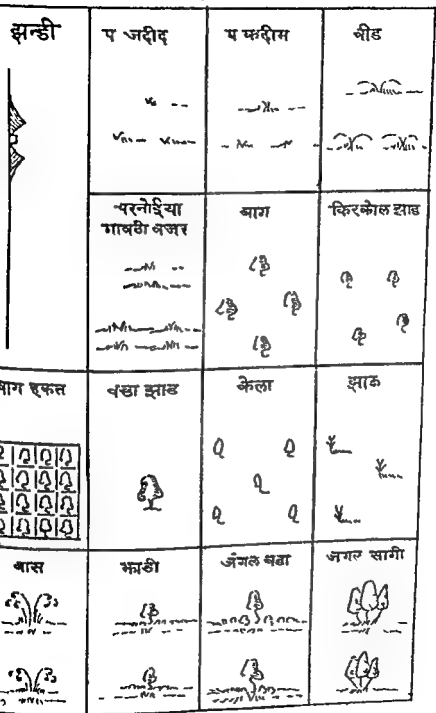 झन्डी
प जदीद
प कदीम
बीड
परनोईया
गावठी बंजर
बाग
किरकोल झाड
बाग हकत
वडा झाड
केला
झाक
बास
झाडी
जंगल बडा
जगल सागी